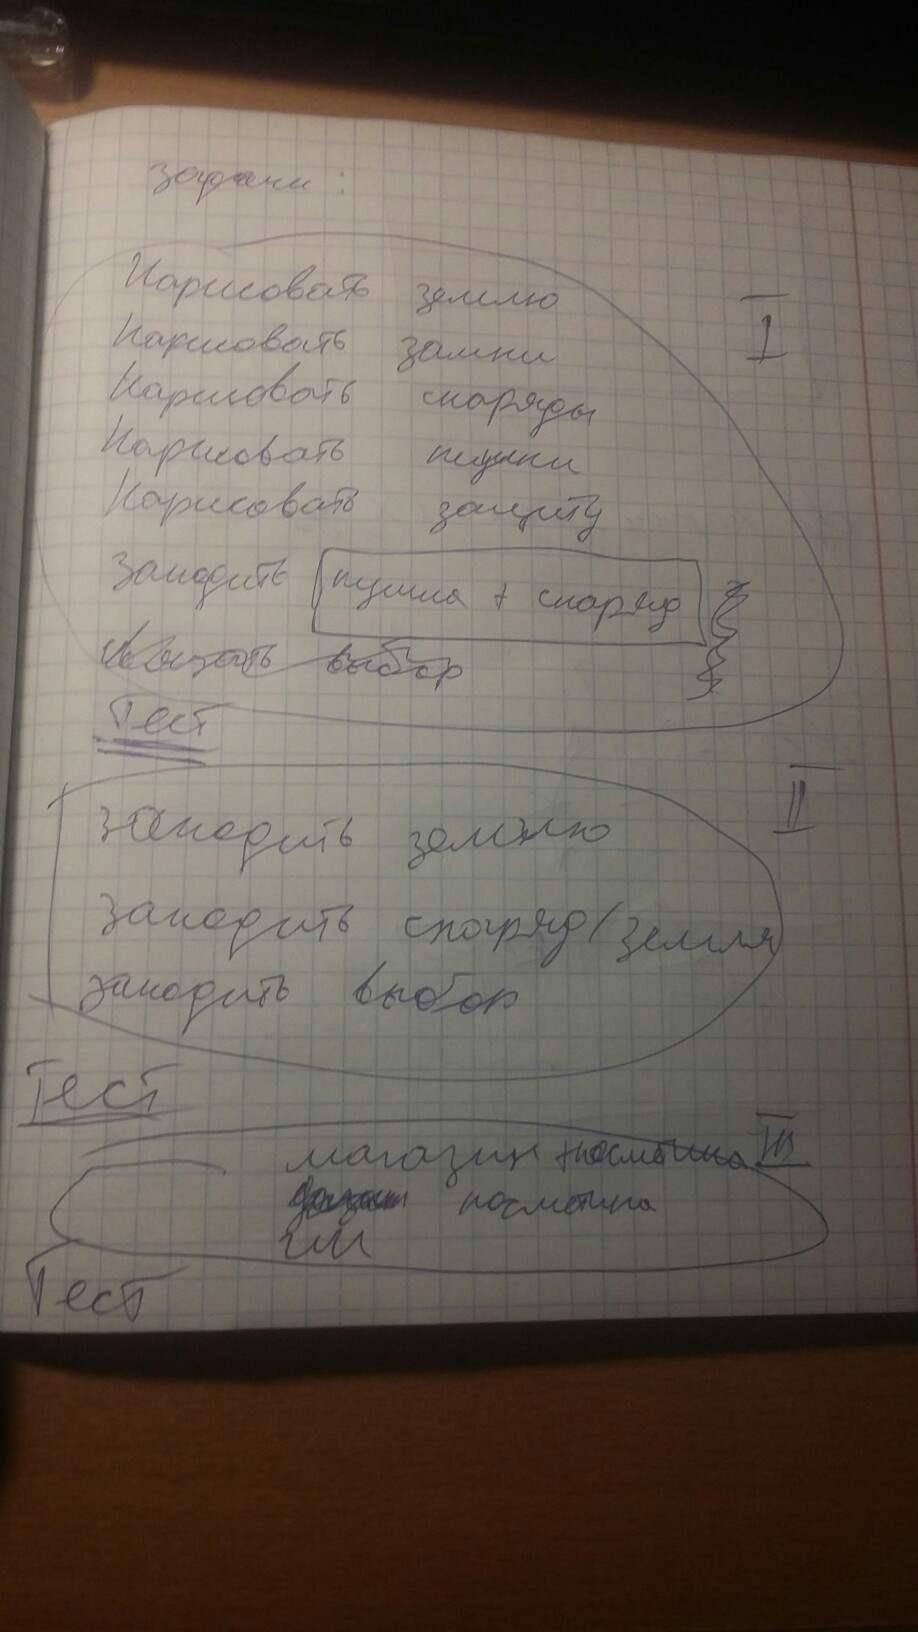 Задачи:
I
Нарисовать землю
Нарисовать замки
Нарисовать снаряды
Нарисовать пушки
Нарисовать защиту
Закодить пушка + снаряд
выбор
Тест
II
Закодить землю
Закодить снаряд/земля
Закодить выбор
Тест
III
магазин +косметика
косметика
Тест